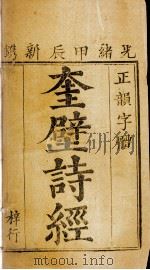 光緒甲辰新鐫
正韻字體
奎壁詩經
梓行
www.mtoou.info